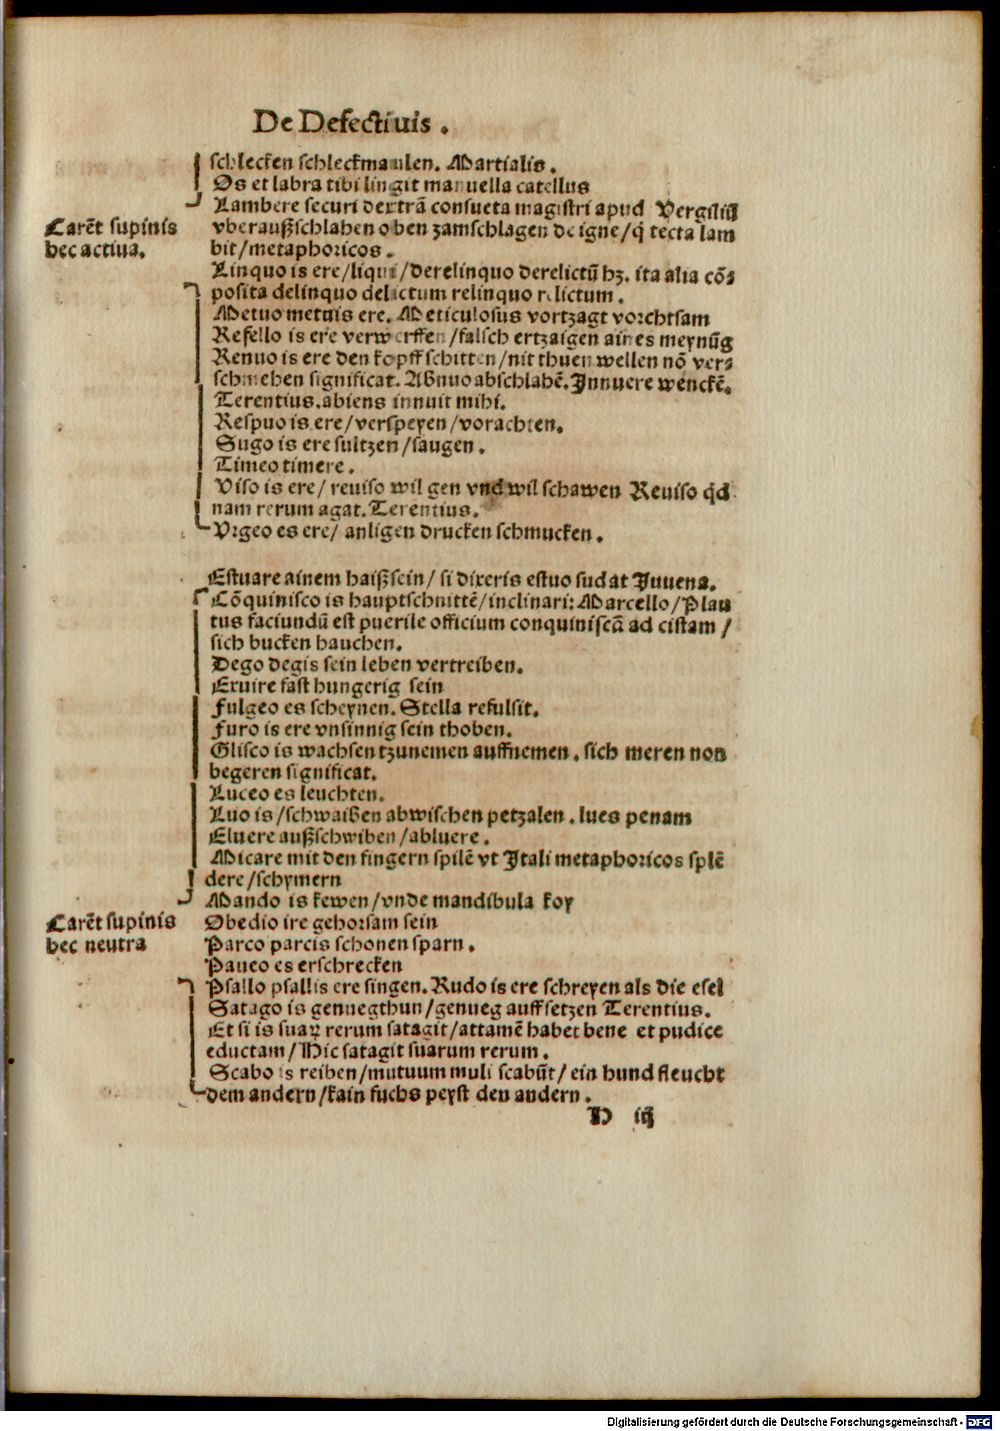 De Defectiuis.
schlecken schleckmaulen. Martialis.
Os et labra tibi lingit manuella catellus
Lambere securi dextrā consueta magistri apud Vergiliū
vberaußschlahen oben zamschlagen de igne/q̄ tecta lam
bit/metaphoricos.
Carēt supinis
hec actiua.
Linquo is ere/liqui/derelinquo derelictū hꝫ. ita alia cō⸗
posita delinquo delictum relinquo relictum.
Metuo metuis ere. Meticulosus vortzagt vorchtsam
Refello is ere verwerffen/falsch ertzaigen aines meynūg
Renuo is ere den kopff schitten/nit thuen wellen nō ver⸗
schmehen significat. Abnuo abschlahē. Innuere wenckē.
Terentius. abiens innuit mihi.
Respuo is ere/verspeyen/vorachten.
Sugo is ere sultzen/saugen.
Timeo timere.
Viso is ere/ reuiso wil gen vnd wil schawen Reuiso qd
nam rerum agat. Terentius.
Vrgeo es ere/ anligen drucken schmucken.
Estuare ainem haiß sein/ si dixeris estuo sudat Iuuena.
Cōquinisco is hauptschnittē/inclinari: Marcello/Plau
tus faciundū est puerile officium conquiniscā ad cistam/
sich bucken hauchen.
Dego degis sein leben vertreiben.
fast hungerig sein
Fulgeo es scheynen. Stella refulsit.
Furo is ere vnsinnig sein thoben.
Glisco is wachsen tzunemen auffnemen. sich meren non
begeren significat.
Luceo es leuchten.
Luo is/schwaißen abwischen petzalen. lues penam
Eluere außschwiben/abluere.
Micare mit den fingern spilē vt Itali metaphoricos splē
dere/schymern
Mando is kewen/vnde mandibula koy
Carēt supinis
hec neutra
Obedio ire gehorsam sein
Parco parcis schonen sparn.
Paueo es erschrecken
Psallo psallis ere singen. Rudo is ere schreyen als die esel
Satago is genuegthun/genueg auffsetzen Terentius.
Et si is suaꝝ rerum satagit/attamē habet bene et pudice
eductam/Hic satagit suarum rerum.
Scabo is reiben/mutuum muli scabūt/ ein hund fleucht
dem andern/kain fuchs peyst den andern.
H iij
Digitalisierung gefördert durch die Deutsche Forschungsgemeinschaft - DFG